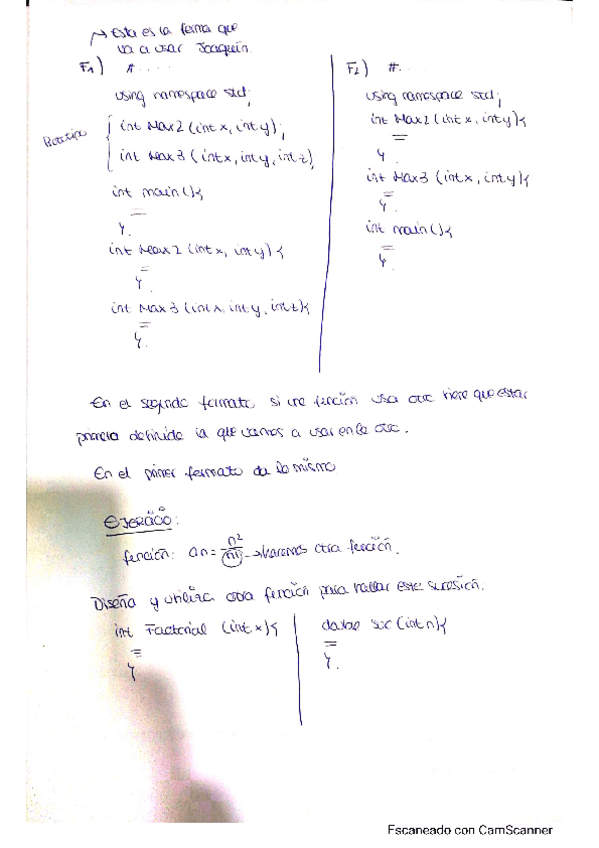 → Esta es la forma que
va a usar Joaquín.
F1) #.....
using namespace std;
Prototipo
int Max2 (int x, int y);
int Max3 (int x, int y, int z);
int main(){
=
}.
int Max2 (int x, int y){
=
}.
int Max3 (int x, int y, int z){
=
}.
F2) #....
using namespace std;
int Max2 (int x, int y){
=
}.
int Max3 (int x, int y){
=
}.
int main(){
=
}.
En el segundo formato si una función usa otra tiene que estar
primero definida la que vamos a usar en la otra.
En el primer formato da lo mismo
EJERCICIO:
función: an = n²/n! → haremos otra función.
Diseña y utiliza otra función para hallar esta sucesión.
int Factorial (int x){
=
}
double suc (int n){
=
}.
Escaneado con CamScanner